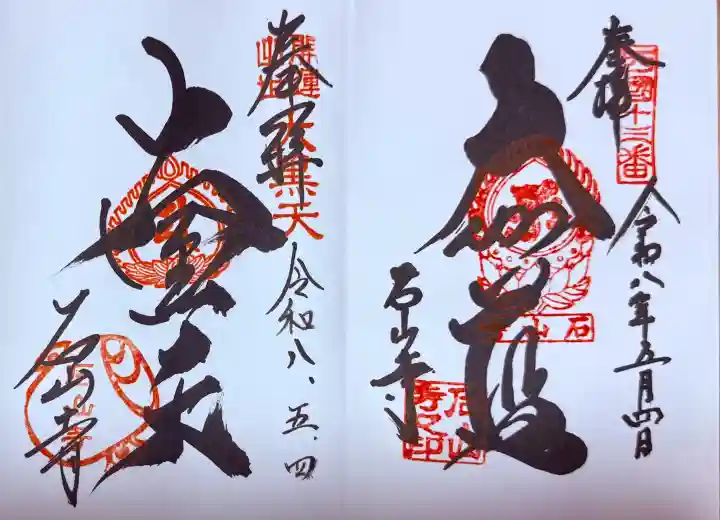 奉拝
西国十三番
令和八年五月四日
大伽藍
石山寺
石山寺之印
奉拝
大黒天
令和八、五、四
大黒天
石山寺